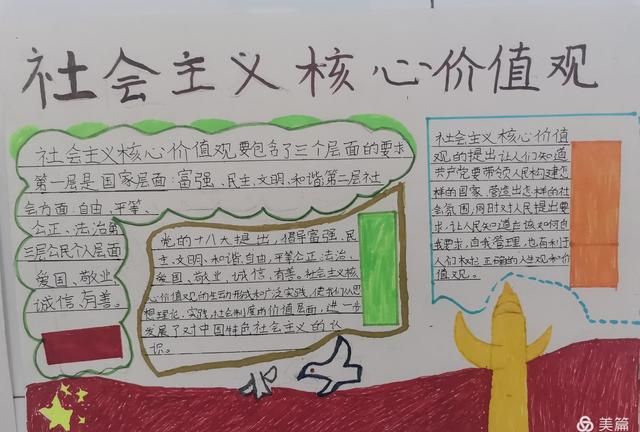 社会主义核心价值观
社会主义核心价值观要包含了三个层面的要求
第一层是国家层面:富强、民主、文明、和谐第二层社
会方面:自由、平等、
公正、法治第
三层公民个人层面
爱国、敬业、
诚信、有善。
党的十八大提出,倡导富强、民
主、文明、和谐、自由、平等公正、法治、
爱国、敬业、诚信、有善。社会主义核
心价值观的生动形式和广泛实践,使我们从思
想理论,实践,社会制度的价值层面,进一步
发展了对中国特色社会主义的认
识。
社会主义核心价值
观的提出让人们知道
共产党要带领人民构建怎
样的国家、营造出怎样的社
会氛围,同时对人民提出要
求:让人民知道应该如何自
我要求,自我管理,也有利于
人们树立正确的人生观和价
值观。
美篇